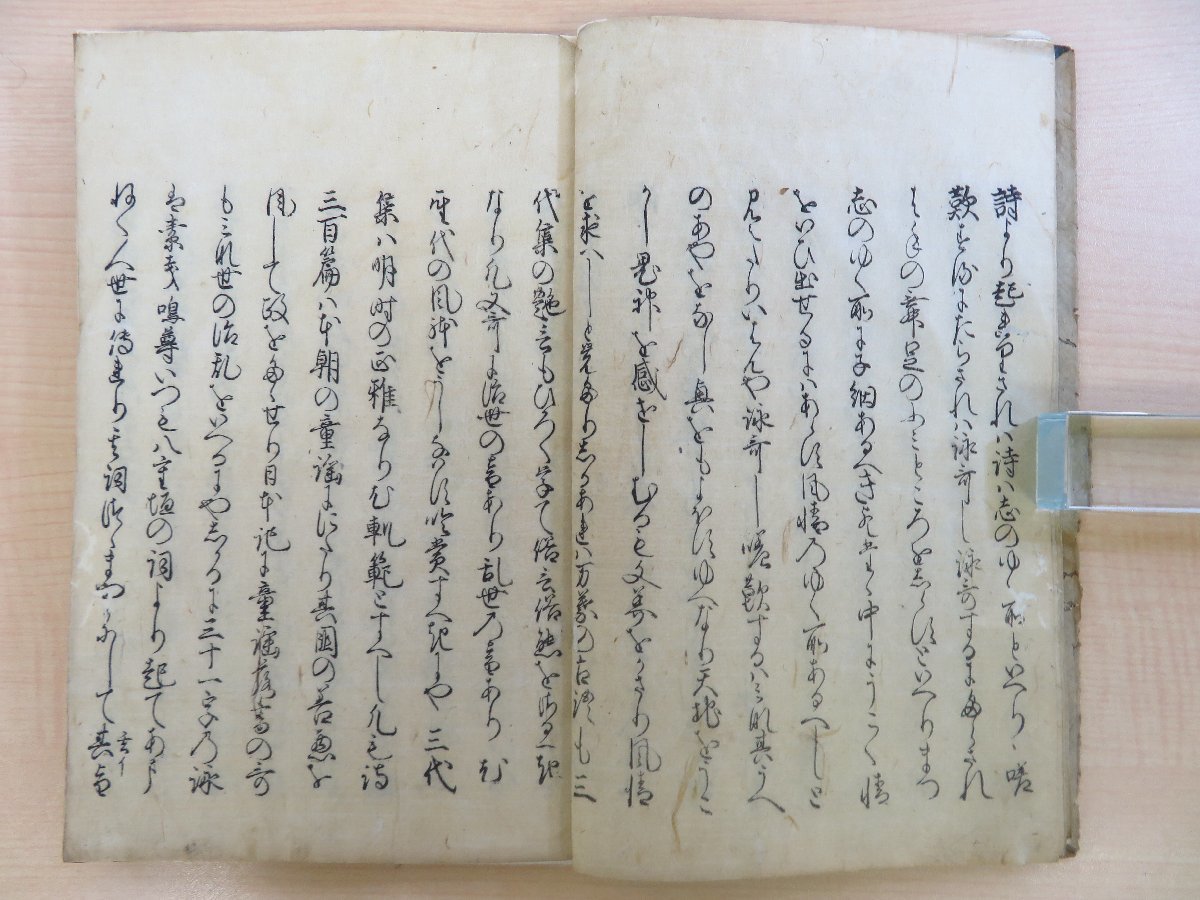 詩より起れりされハ詩ハ志のゆく所といへり嗟
歎するにたらされハ詠哥し詠哥するにたらされ
は手の舞足のふミところをしらすといへりまつ
志のゆく所に子細あるへき先其中にうこく情
をいひ出せるにハあらす風情のゆく所あるへしと
見えたりいはんや詠哥し嗟歎するハミな其うへ
のあやをなし興をもよほすゆへなり天地をうこ
かし鬼神を感せしむるも文華をかさり風情
を求へしと見えたりしかあれハ万葉の古語も三
代集の艶言もひろく学て俗言俗態をさるへき
なり凡又哥に治世の音あり乱世の音あり
代の風体をうしなハす賞すへきにや三代
集ハ明時の正雅なり尤軌範とすへし凡毛詩
三百篇ハ本朝の童謡にたり其国の善悪を
風して政をたゝせり日本記に童謡の哥
もミな世の治乱をいへるにやしかるに三十一字の詠
は素戔嗚尊いつも八重垣の詞より起てあま
ねく人世に傳れり其詞して其旨